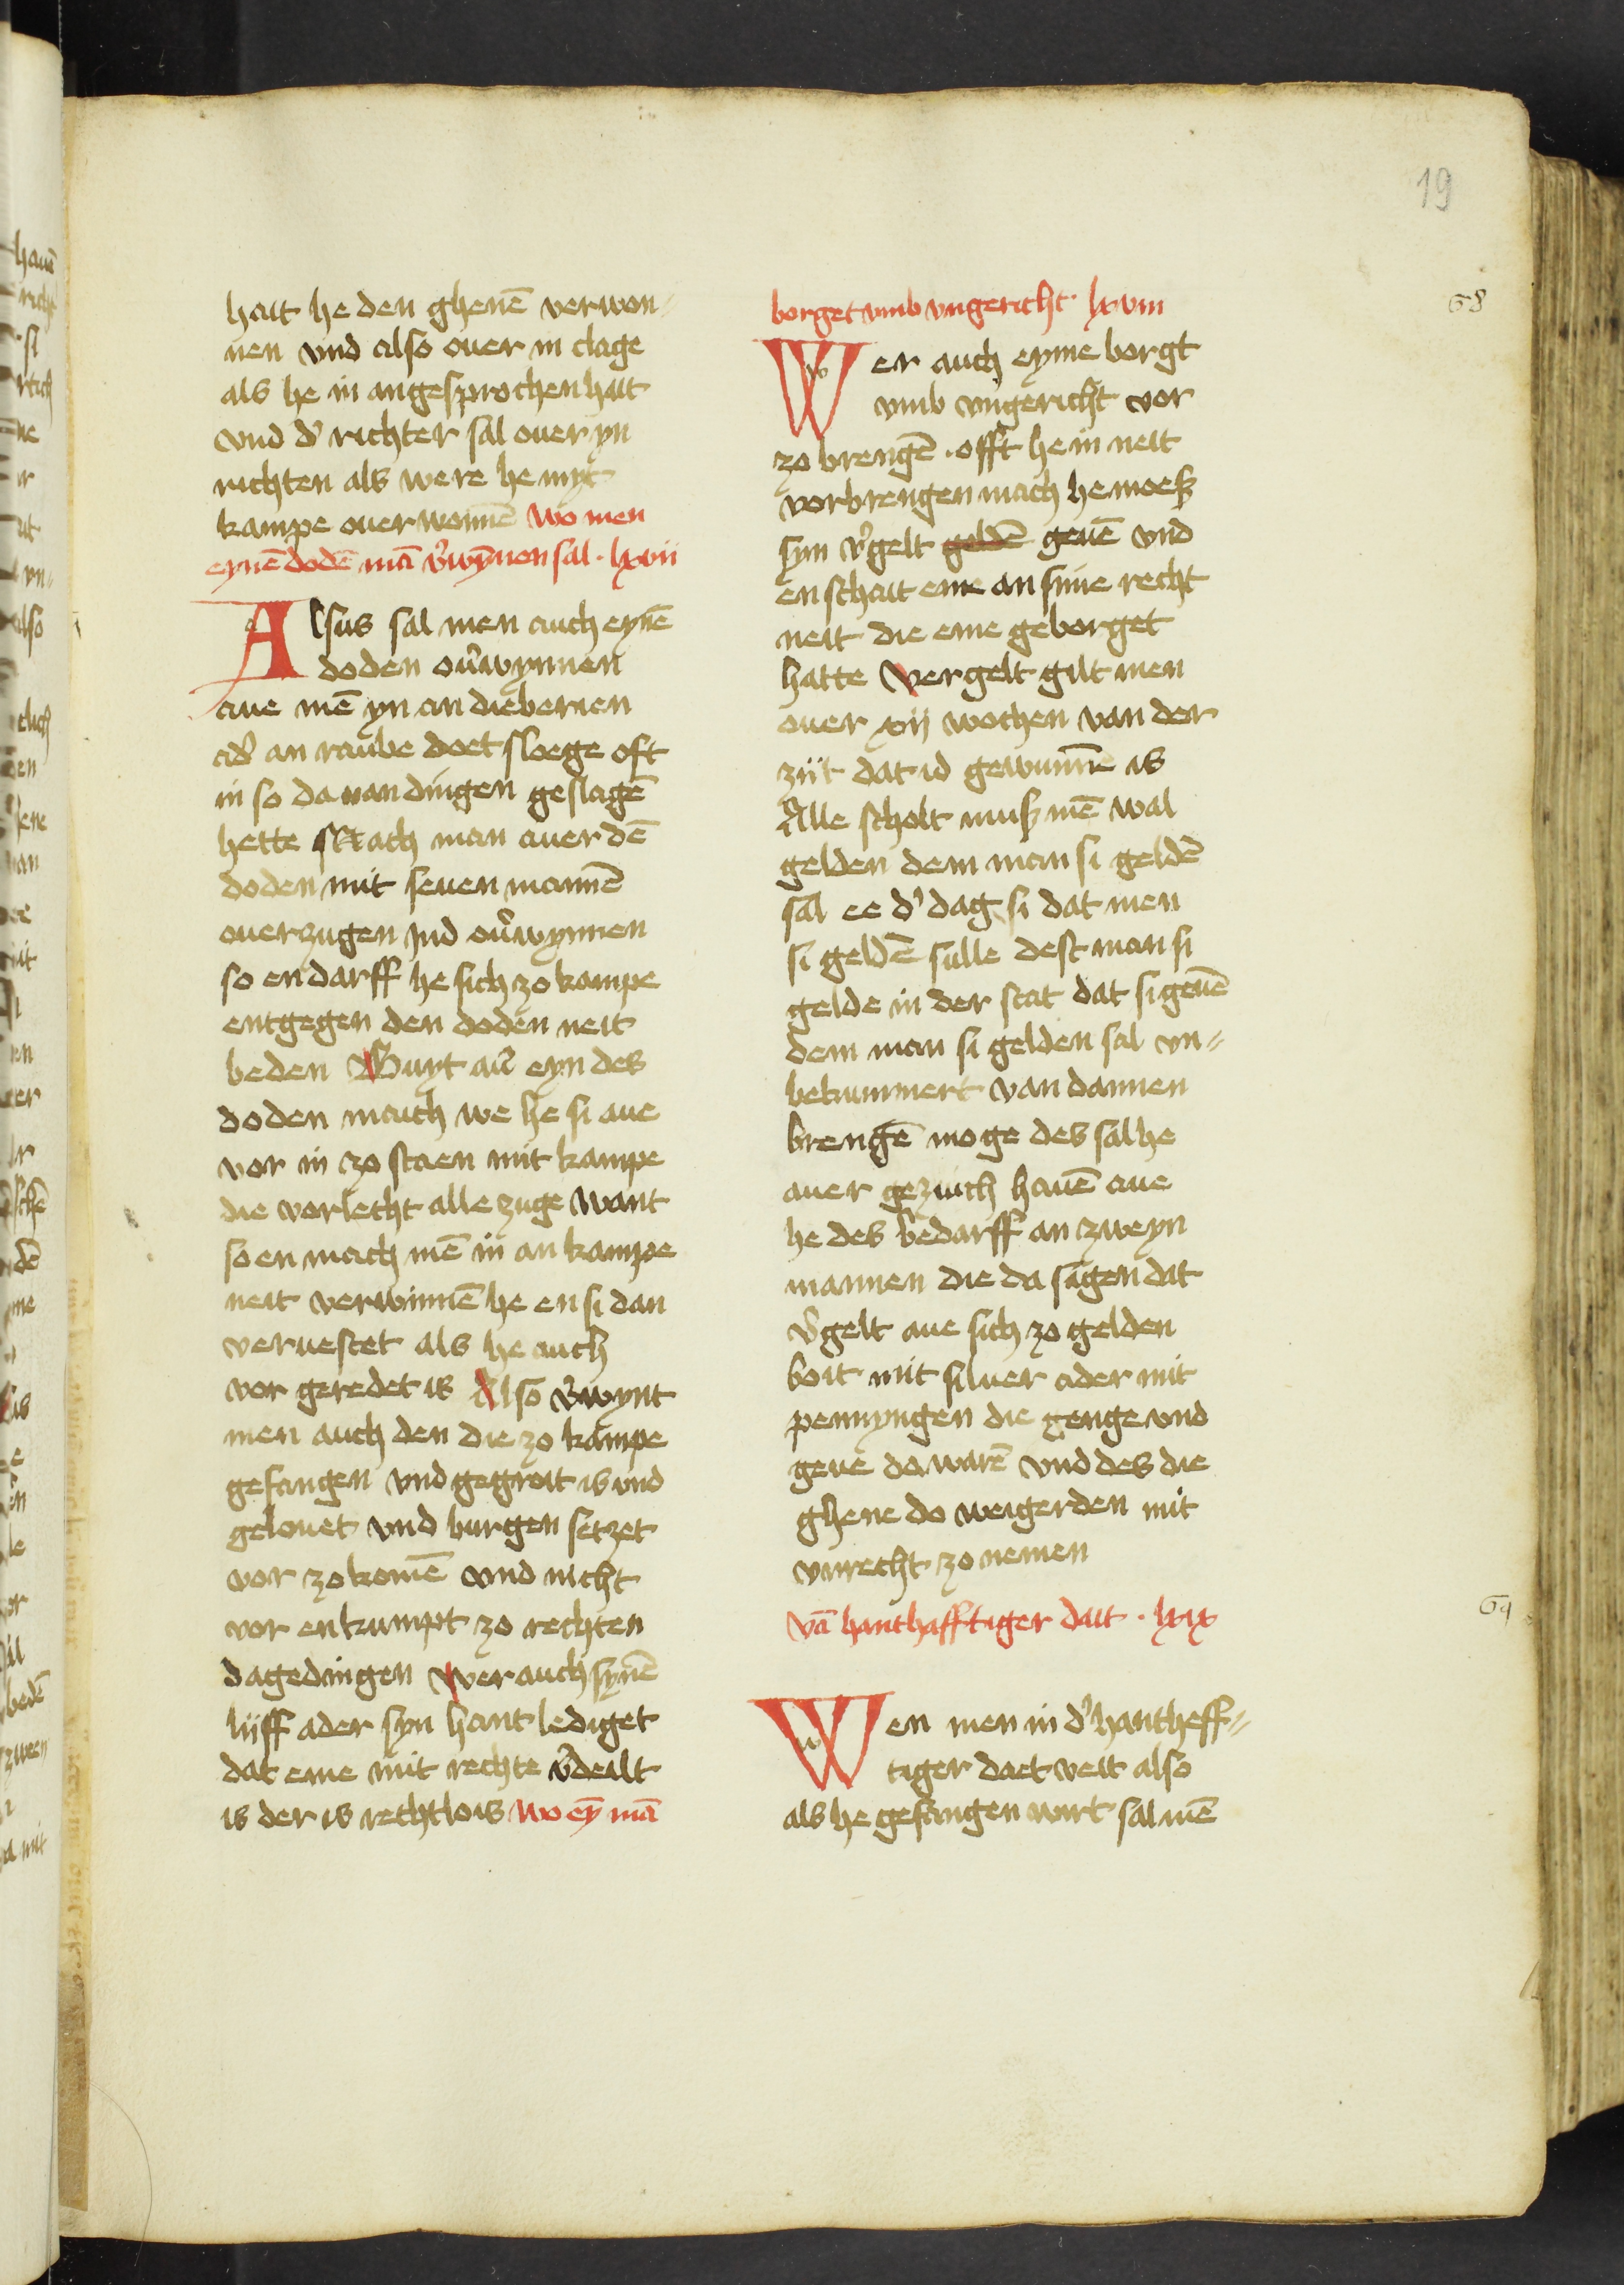 19
hait he den ghenē verwon-
nen vnd also ouer in clage
als he in angesprochen hait
vnd d' richter sal ouer yn
richten als were he myt
kampe ouerwonnē Wo men
eynē dodē mā v'wȳnnen sal · lxvii
Alsus sal men auch eynē
doden ou'wynnen
aue mē yn an dieberien
ad' an raube doet sloege oft
in so da van dingen geslagē
hette Mach man auer dē
doden mit seuen mannē
ouerzugen Ind ou'wynnen
so en darff he sich zo kampe
entgegen den doden neit
beden Buyt au' eyn des
doden mach we he si aue
vor in zo staen mit kampe
die vorlecht alle zuge want
so en mach mē in an kampe
neit verwinnē he en si dan
veruestet als he auch
vor geredet is Also v'wynt
men auch den die zo kampe
gefangen vnd gegroit is vnd
gelouet vnd burgen setzet
vor zo komē vnd nicht
vor enkumpt zo rechten
dagedingen Wer auch synē
lijff ader syn hant lediget
dat eme mit rechte v'deilt
is der is rechtlois Wo eȳ mā
borget vmb vngericht · lxviii
68
Wer auch eyme borgt
vmb vngericht vor
zo brengē · offt he in neit
vorbrengen mach he moeß
syn v'gelt geldē geuē vnd
en schait eme an sime recht
neit die eme geborget
hatte Vergelt gilt men
ouer xij wochen van der
ziit dat id gewunnē is
Alle scholt muß mē wal
gelden dem man si geldē
sal ee d' dag si dat men
si geldē sulle dest man si
gelde in der stat dat si geuē
dem man si gelden sal vn-
bekummert van dannen
brengē moge des sal he
auer gezuich hauē aue
he des bedarff an zweyn
mannen die da sagen dat
v'gelt aue sich zo gelden
boit mit siluer ader mit
pennyngen die genge vnd
geue da warē vnd des die
ghene do weigerden mit
vnrecht zo nemen
Vā hanthafftiger dait · lxix
69
Wen men in d' hantheff-
tiger daet veit also
als he gefangen wirt sal mē